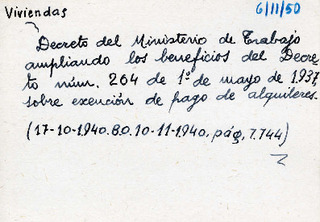 Viviendas
6/11/50
Decreto del Ministerio de Trabajo
ampliando los beneficios del Decre
to núm. 264 de 1º de mayo de 1937,
sobre exención de pago de alquileres.
(17-10-1940. B.O. 10-11-1940, pág. 7.744)